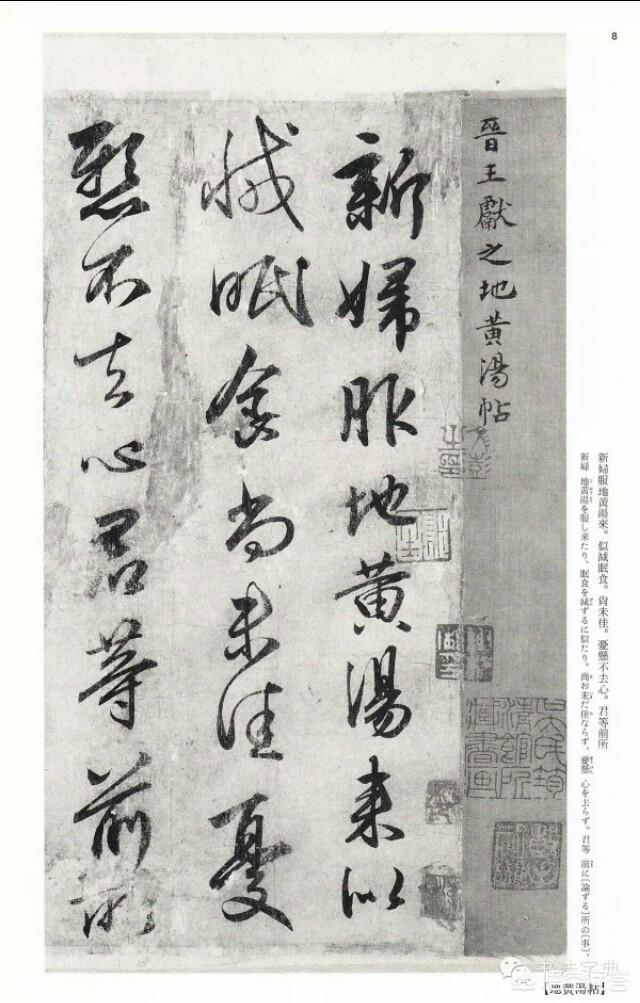 8
晉王獻之地黃湯帖
新婦服地黃湯来似
減眠食尚未佳憂
懸不去心君等前所
新婦服地黃湯來。似減眠食。尙未佳。憂懸不去心。君等前所
新婦 地黃湯を服し来たり、眠食を減ずるに似たり。尙お未だ佳ならず、憂懸 心を去らず。君等 前に〔論ずる〕所の〔事〕、
【地黄湯帖】
书法字典